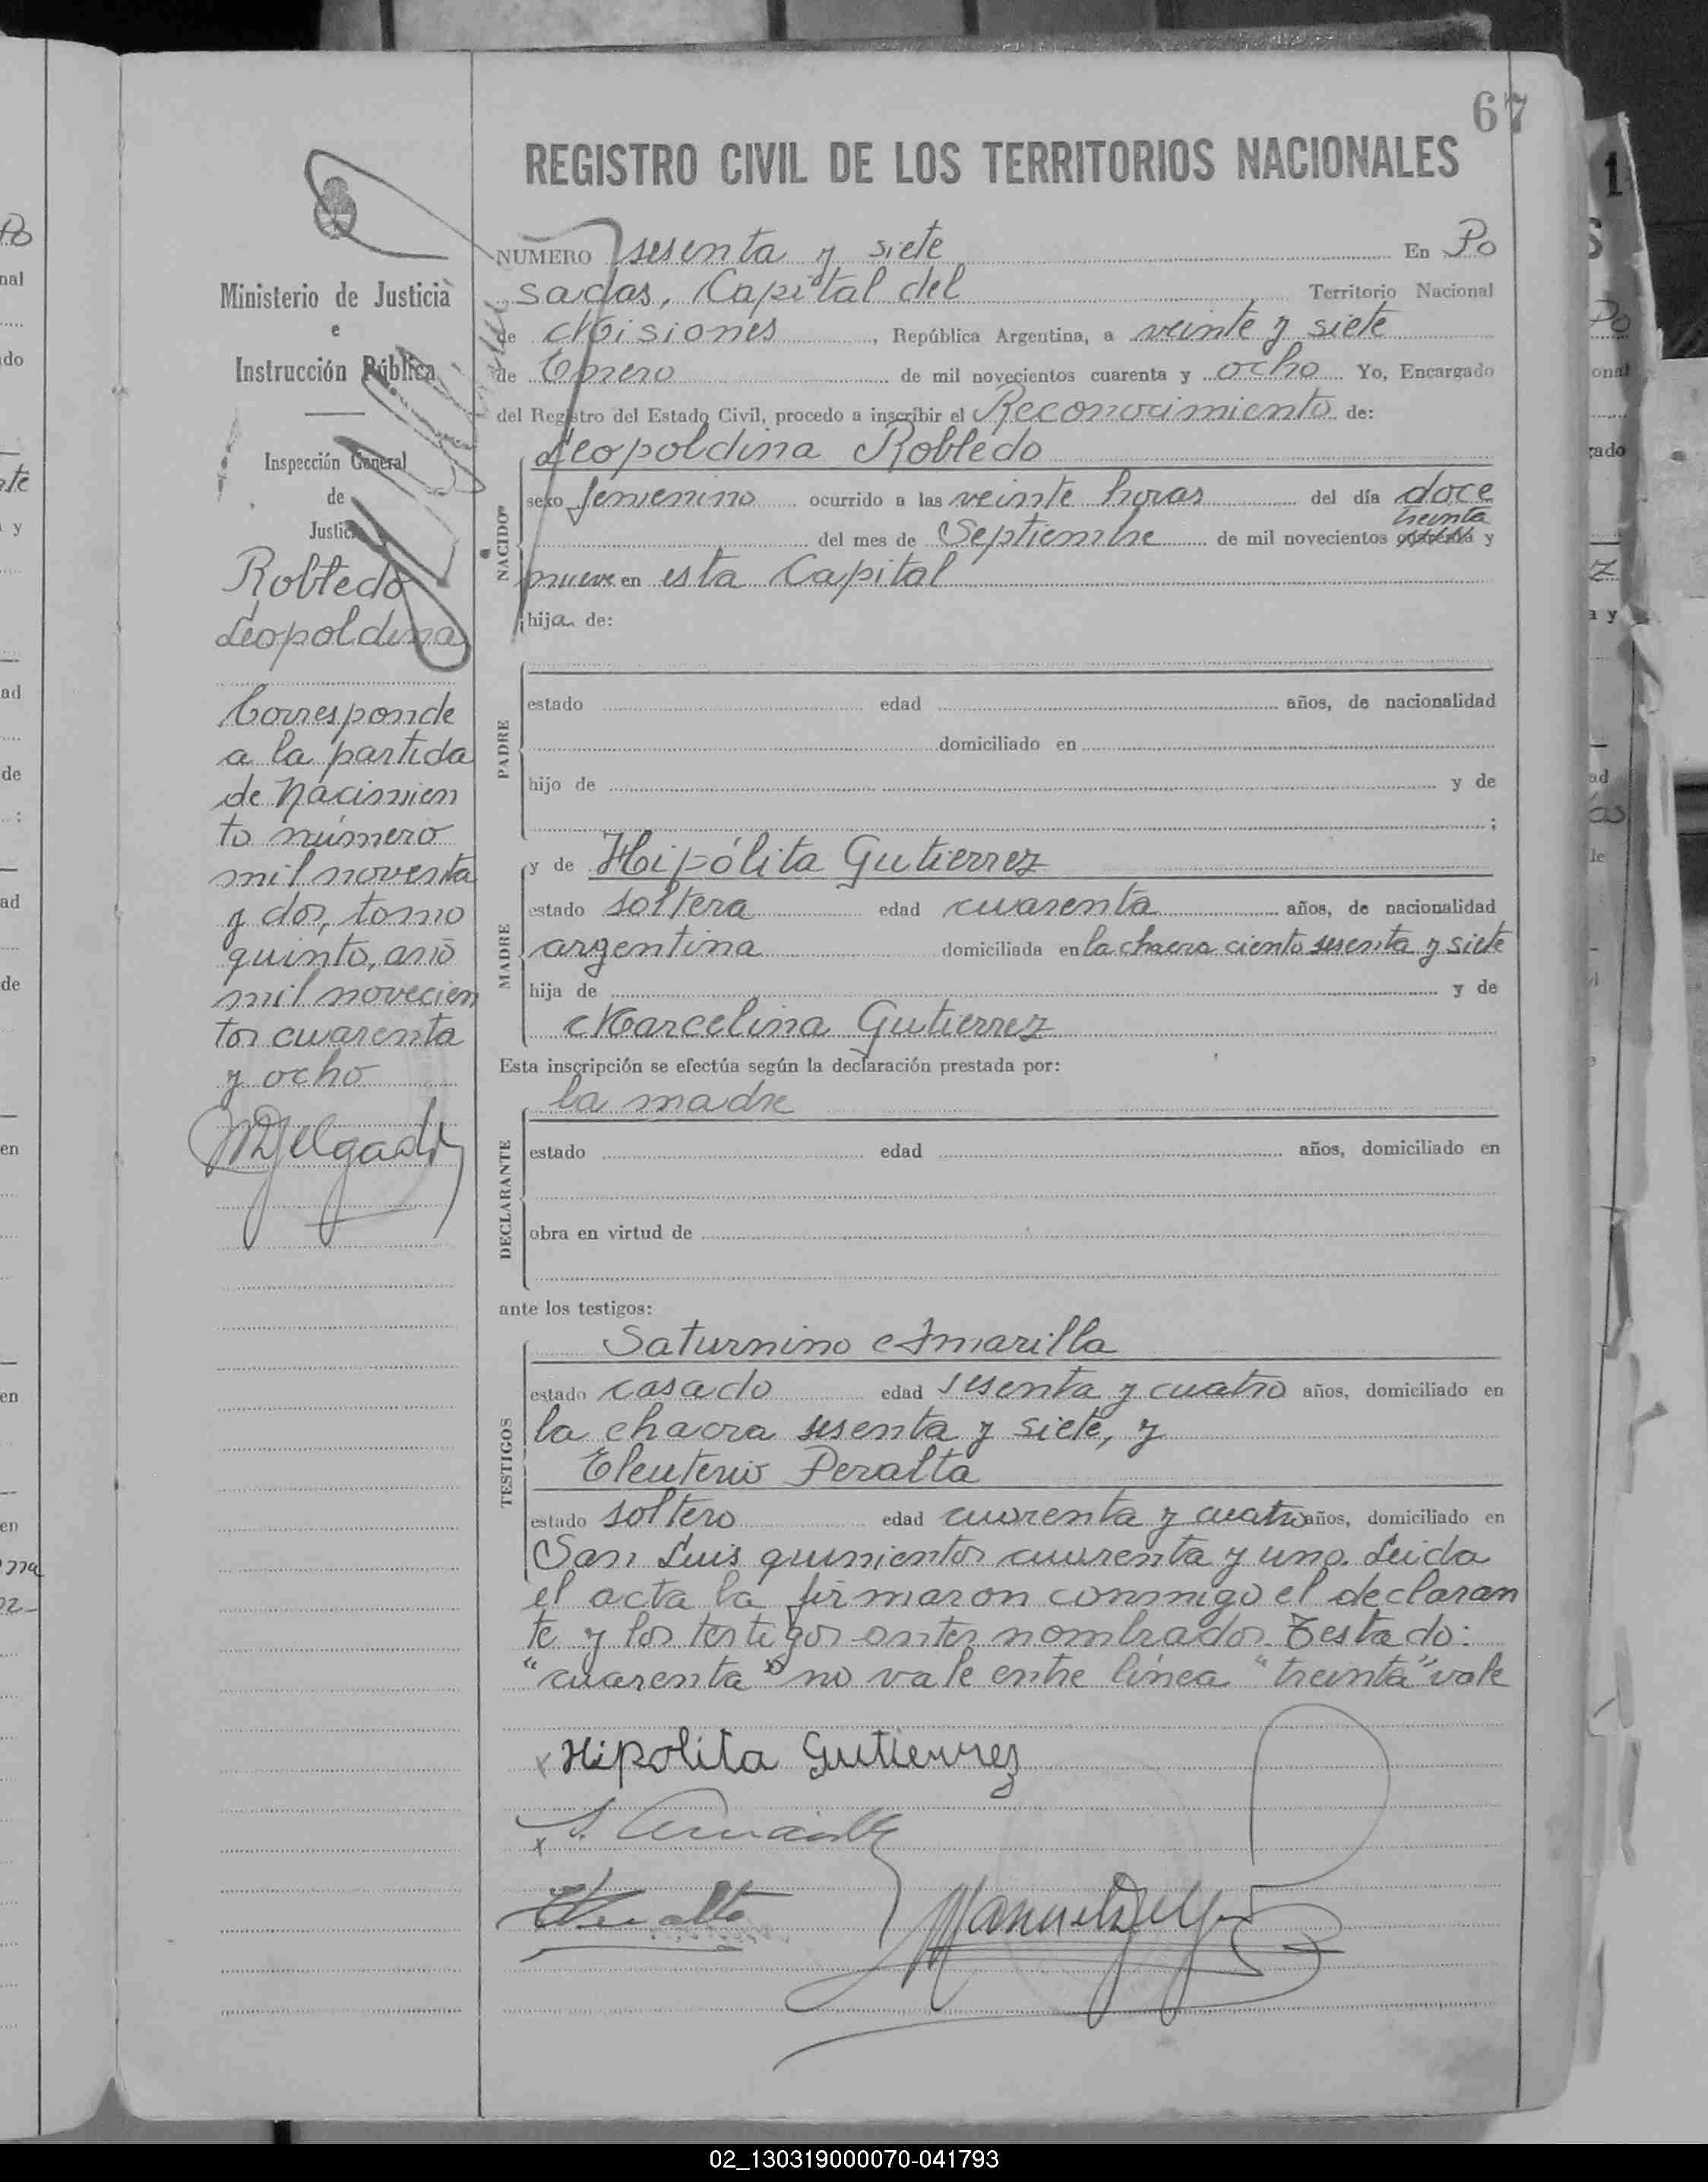 67
REGISTRO CIVIL DE LOS TERRITORIOS NACIONALES
Ministerio de Justicia
e
Instrucción Pública
Inspección General
de
Justicia
Robledo
Leopoldina
Corresponde
a la partida
de Nacimien
to número
mil noventa
y dos, tomo
quinto, año
mil novecien
tos cuarenta
y ocho
MDelgado
NÚMERO sesenta y siete En Po
sadas, Capital del Territorio Nacional
de Misiones, República Argentina, a veinte y siete
de Enero de mil novecientos cuarenta y ocho Yo, Encargado
del Registro del Estado Civil, procedo a inscribir el Reconocimiento de:
Leopoldina Robledo
NACIDO
sexo femenino ocurrido a las veinte horas del día doce
treinta
del mes de Septiembre de mil novecientos cuarenta y
nueve en esta Capital
hija de:
PADRE
estado edad años, de nacionalidad
domiciliado en
hijo de y de
;
y de Hipólita Gutierrez
MADRE
estado soltera edad cuarenta años, de nacionalidad
argentina domiciliada en la chacra ciento sesenta y siete
hija de y de
Marcelina Gutierrez
Esta inscripción se efectúa según la declaración prestada por:
la madre
DECLARANTE
estado edad años, domiciliado en
obra en virtud de
ante los testigos:
Saturnino Amarilla
TESTIGOS
estado casado edad sesenta y cuatro años, domiciliado en
la chacra sesenta y siete, y
Eleuterio Peralta
estado soltero edad cuarenta y cuatro años, domiciliado en
San Luis quinientos cuarenta y uno. Leida
el acta la firmaron conmigo el declaran
te y los testigos antes nombrados. Testado:
"cuarenta" no vale entre línea "treinta" vale
x Hipolita Gutierrez
x S. Amarilla
EPeralta
Manuel Delgado
02_130319000070-041793